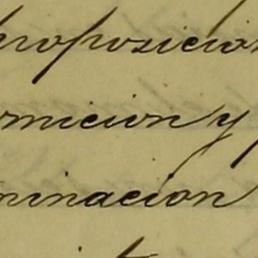 proposicion
rmicion y
minacion